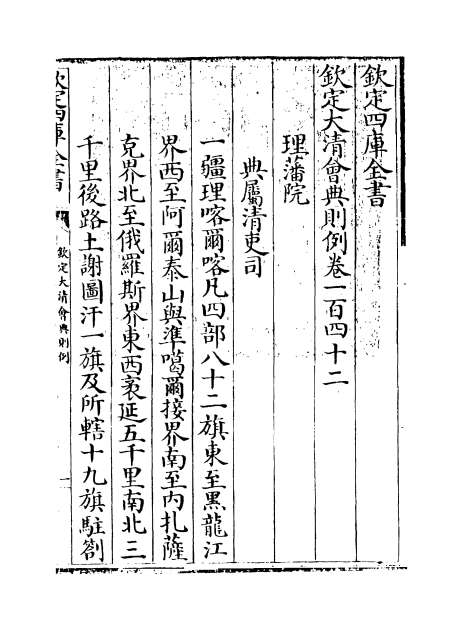 欽定四庫全書
欽定大清會典則例卷一百四十二
理藩院
典屬清吏司
一疆理喀爾喀凡四部八十二旗東至黑龍江
界西至阿爾泰山與準噶爾接界南至内扎薩
克界北至俄羅斯界東西袤延五千里南北三
千里後路土謝圖汗一旗及所轄十九旗駐劄
欽定四庫全書
欽定大清會典則例
一